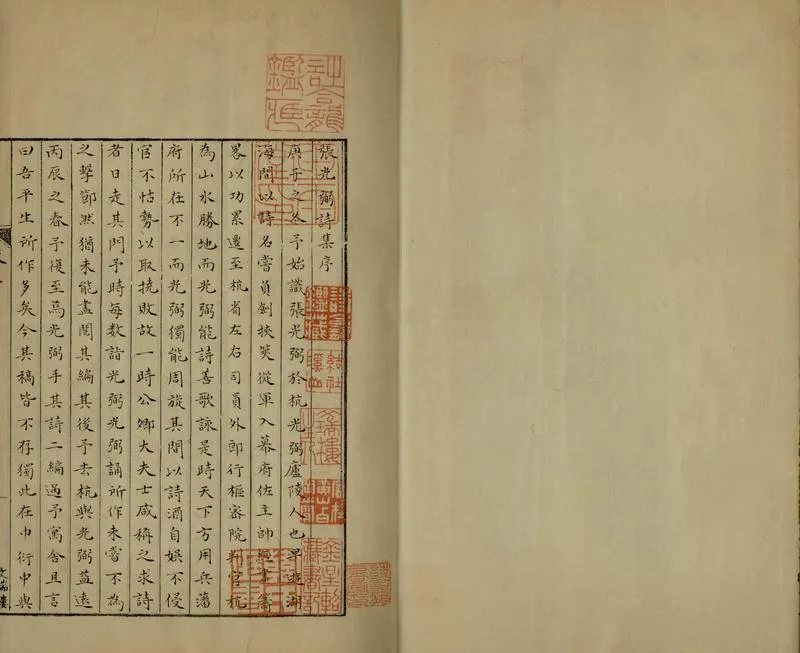 張光弼詩集序
庚子之冬予始識張光弼於杭光弼廬陵人也早遊湖
海間以詩名嘗負劍挾筴從軍入幕府佐主帥經畫籌
畧以功累遷至杭省左右司員外郎行樞密院判官杭
為山水勝地而光弼能詩善歌詠是時天下方用兵藩
府所在不一而光弼獨能周旋其間以詩酒自娛不侵
官不怙勢以取撓敗故一時公卿大夫士咸稱之求詩
者日走其門予時每數詣光弼光弼誦所作未嘗不為
之擊節然猶未能盡閱其編其後予去杭與光弼益遠
丙辰之春予復至焉光弼手其詩二編過予寓舍且言
曰吾平生所作多矣今其稿皆不存獨此在巾衍中與
文瑞樓
結社溪山